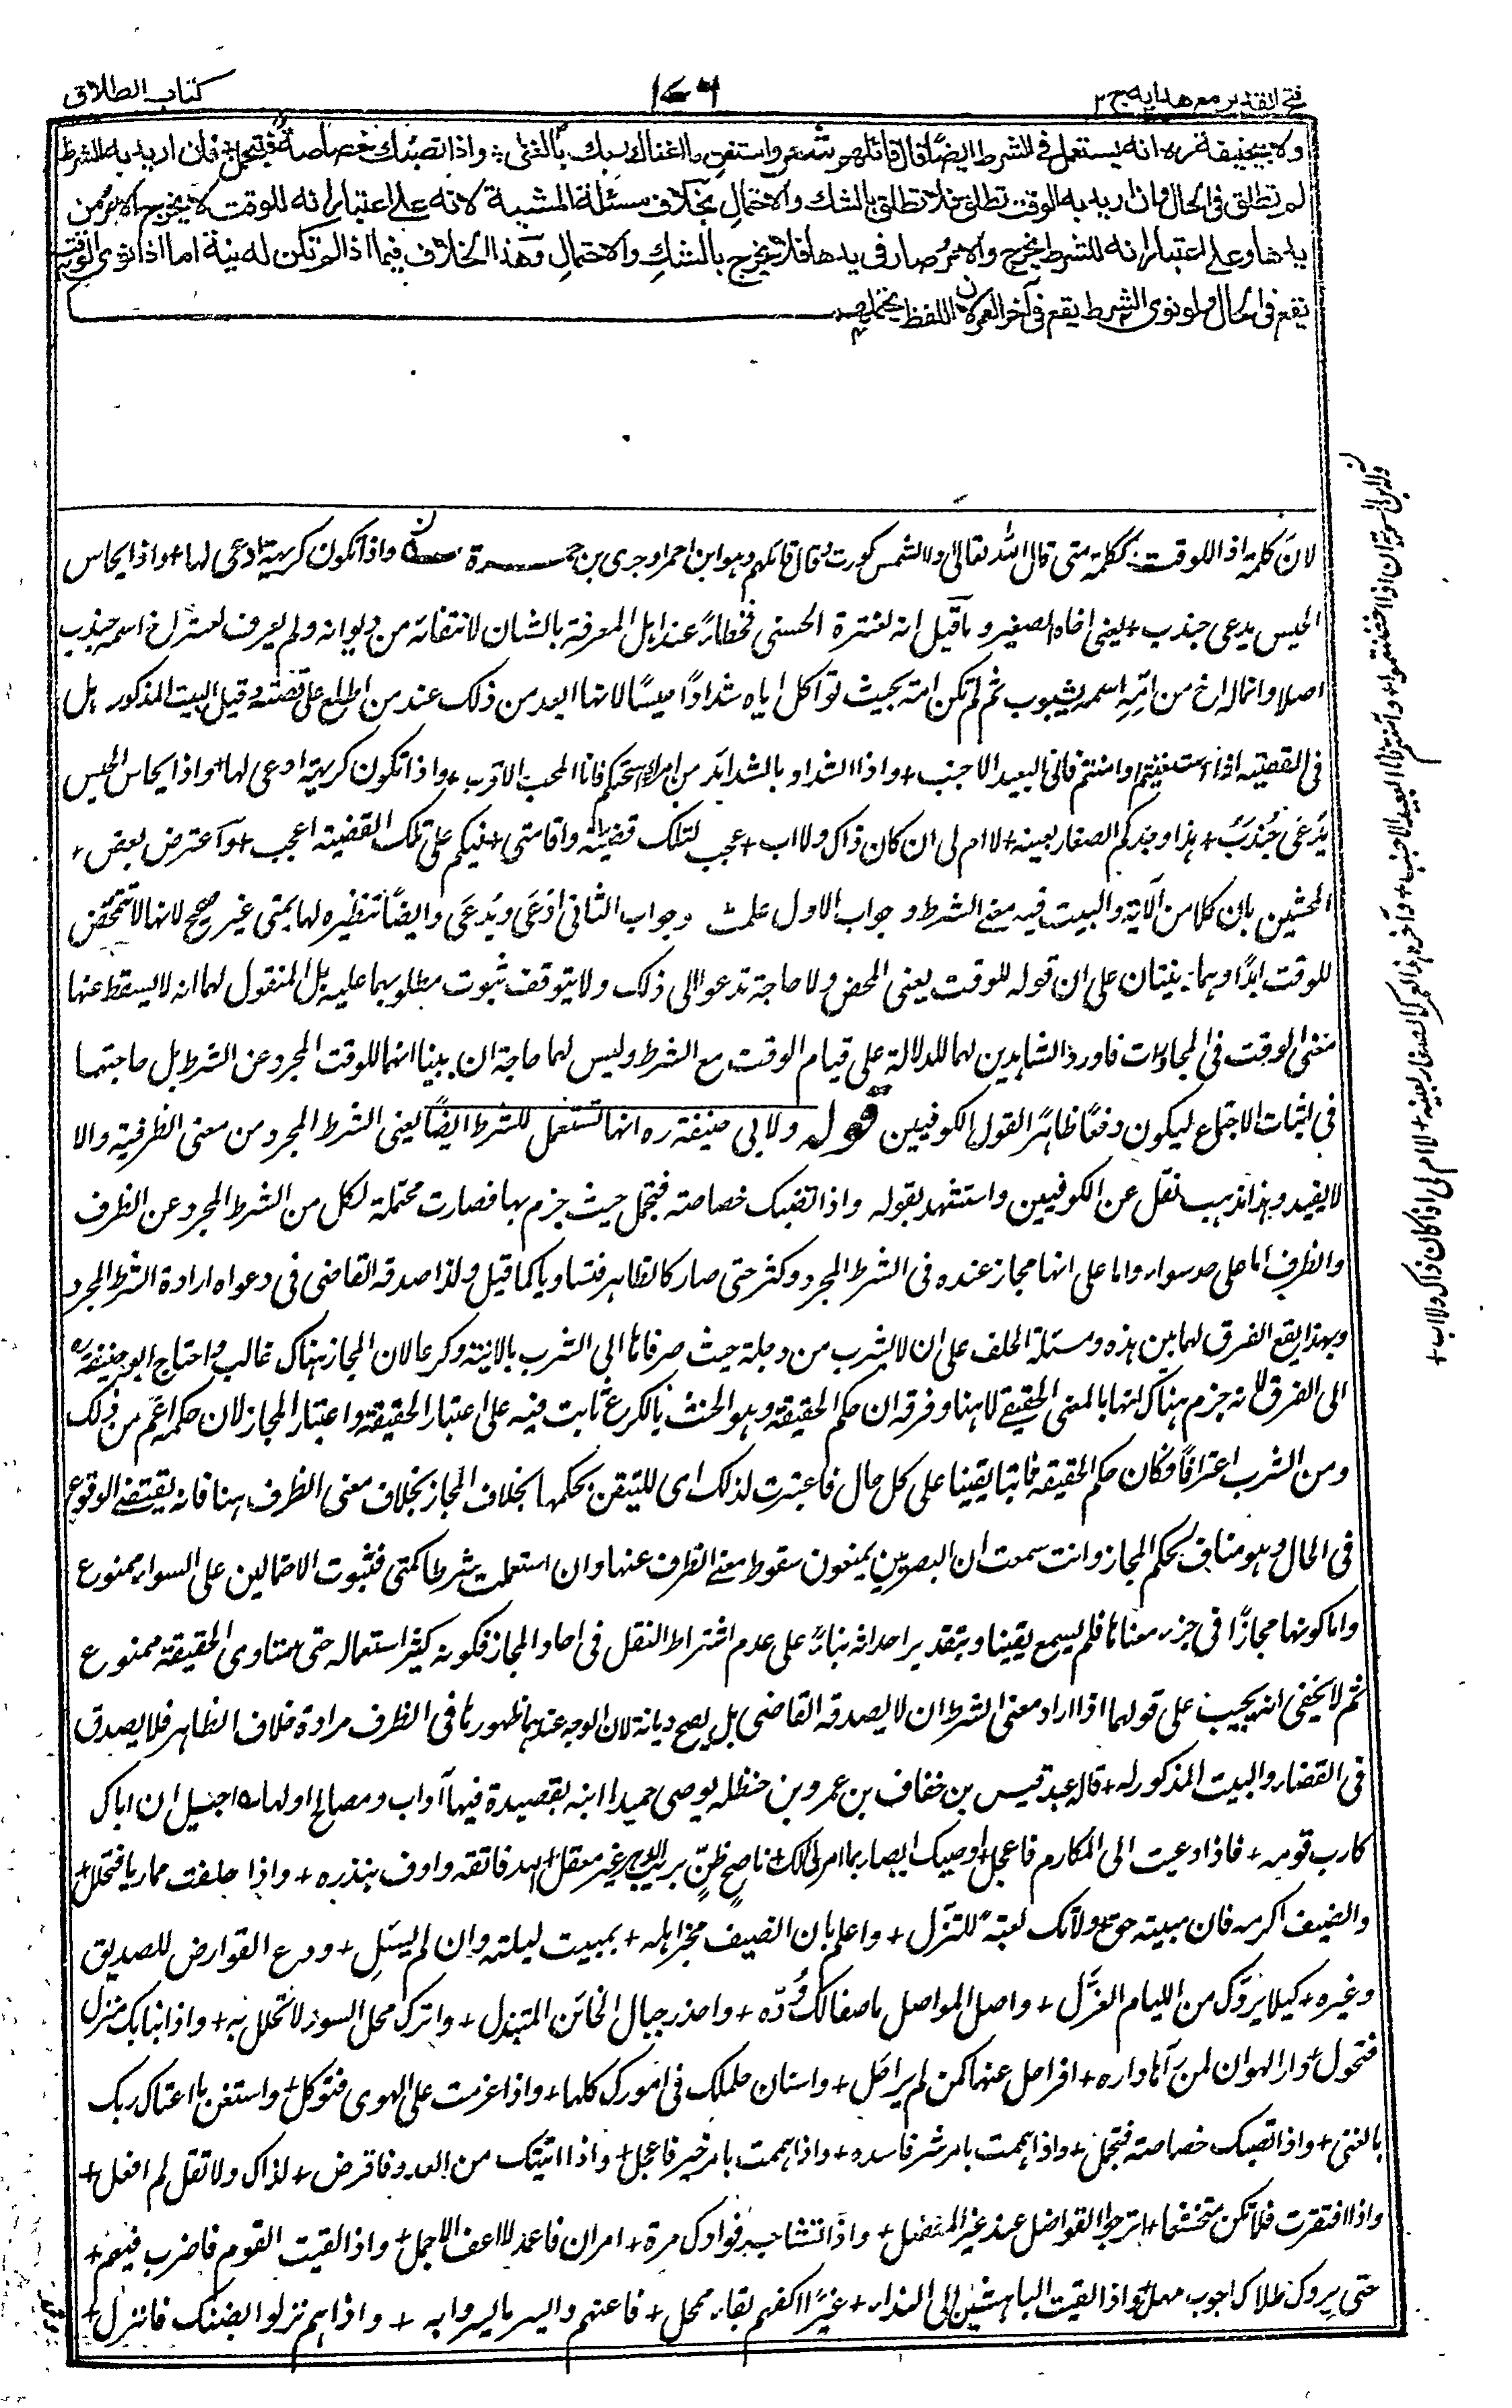 فتح القدير مع هدايه ج ٢
١٧٦
كتاب الطلاق
ولابي حنيفة ره انه يستعمل في الشرط ايضا قال قائلهم شعر واستغن ما اغناك ربك بالغنى ؛ واذا تصبك خصاصة فتجمل ؛ فان اريد به الشرط
لم تطلق في الحال وان اريد به الوقت تطلق فلا تطلق بالشك والاحتمال بخلاف مسئلة المشية لانه على اعتبار انه للوقت لا يخرج الامر من
يدها وعلى اعتبار انه للشرط يخرج والامر صار في يدها فلا يخرج بالشك والاحتمال وهذا الخلاف فيما اذا لم تكن له نية اما اذا نوى الوقت
يقع في الحال ولو نوى الشرط يقع في آخر العمر لان اللفظ يحتملهما
لان كلمة اذا للوقت ككلمة متى قال الله تعالى اذا الشمس كورت وقال قائلهم وهو ابن احمر او جرى بن واذا تكون كريهة ادعى لها + واذا يحاس
الحيس يدعى جندب + يعني اخاه الصغير وما قيل انه لعنترة الحسنى فخطاء عند اهل المعرفة بالشان لانتفائه من ديوانه ولم يعرف لعنترة اخ اسمه جندب
اصلا وانما له اخ من امه اسمه شيبوب ثم لم تكن امه بحيث تواكل اياه شدادا حيسا لانها ابعد من ذلك عند من اطلع على قصته وقيل البيت المذكور بل
في القضية اذا استغنيتم وامنتم فانى البعيد الاجنب + واذا الشدائد بالشدائد مرة اشجتكم فانا المحب الاقرب + واذا تكون كريهة ادعى لها + واذا يحاس الحيس
يدعى جندب + هذا وجدكم الصغار بعينه + لا ام لي ان كان ذاك ولا اب + عجب لتلك قضية واقامتى + فيكم على تلك القضية اعجب + واعترض بعض
المحشين بان كلا من الآية والبيت فيه معنى الشرط وجواب الاول علمت وجواب الثاني ادعى ويدعى وايضا تنظيره لها بمتى غير صحيح لانها لا تتمحض
للوقت ابدا وهما بنيتان على ان قوله للوقت يعني المحض ولا حاجة تدعوا الى ذلك ولا يتوقف ثبوت مطلوبهما عليه بل المنقول لهما انه لا يسقط عنها
معنى الوقت في المجازات فاورد الشاهدين لهما للدلالة على قيام الوقت مع الشرط وليس لهما حاجة ان يبينا انها للوقت المجرد عن الشرط بل حاجتهما
في اثبات الاجتماع ليكون دفعا ظاهرا لقول الكوفيين قوله ولابي حنيفة ره انها تستعمل للشرط ايضا يعني الشرط المجرد من معنى الظرفية والا
لا يفيد وهذا مذهب نقل عن الكوفيين واستشهد بقوله واذا تصبك خصاصة فتجمل حيث جزم بها فصارت محتملة لكل من الشرط المجرد عن الظرف
والظرف اما على حد سواء واما على انها مجاز عنده في الشرط المجرد وكثر حتى صار كالظاهر فتساويا كما قيل ولذا صدقه القاضى في دعواه ارادة الشرط المجرد
وبهذا يقع الفرق لهما بين هذه ومسئلة الحلف على ان لا يشرب من دجلة حيث صرفاها الى الشرب بالآنية وكرعا لان المجاز هناك غالب واحتاج ابو حنيفة ره
الى الفرق لانه جزم هناك انها بالمعنى الحقيقي لا هنا وفرقه ان حكم الحقيقة وهو الحنث بالكرع ثابت فيه على اعتبار الحقيقة واعتبار المجاز لان حكمه اعم من ذلك
ومن الشرب اعترافا وكان حكم الحقيقة ثابتا يقينا على كل حال فاعتبرت لذلك اى للتيقن بحكمها بخلاف المجاز بخلاف معنى الظرف هنا فانه يقتضى الوقوع
في الحال وهو مناف لحكم المجاز وانت سمعت ان البصريين يمنعون سقوط معنى الظرف عنها وان استعملت شرطا كمتى فثبوت الاحتمالين على السواء ممنوع
واما كونها مجازا في جزء معناها فلم يسمع يقينا وبتقدير احداثه بناء على عدم اشتراط النقل في آحاد المجاز فكونه كثر استعماله حتى تساوى الحقيقة ممنوع
ثم لا يخفى انه يجيب على قولهما اذا اراد معنى الشرط ان لا يصدقه القاضى بل يصح ديانة لان الوجه عندهما ظهورها في الظرف مراده خلاف الظاهر فلا يصدق
في القضاء والبيت المذكور له + قاله عبد قيس بن خفاف بن عمرو بن حنظله يوصى حميدا ابنه بقصيدة فيها آداب ومصالح اولها اجبيل ان اباك
كارب قومه + فاذا دعيت الى المكارم فاعجل + اوصيك ايصاء امرئ لك ناصح طبن بريب الدهر غير مغفل + الله فاتقه واوف بنذره + واذا حلفت مماريا فتحلل +
والضيف اكرمه فان مبيته حق + ولا تك لعنة للنزل + واعلم بان الضيف مخبر اهله + بمبيت ليلته وان لم يسئل + ودع القوارض للصديق
وغيره + كيلا يروك من اللئام العزل + واصل المواصل ما صفالك وده + واحذر حبال الخائن المتبذل + واترك محل السوء لا تحلل به + واذا نبا بك منزل
فتحول + دار الهوان لمن رآها داره + افراحل عنها كمن لم يرحل + واستان حلمك في امورك كلها + واذا عزمت على الهوى فتوكل + واستغن ما اغناك ربك
بالغنى + واذا تصبك خصاصة فتجمل + واذا هممت بامر شر فاتئده + واذا هممت بامر خير فاعجل + واذا اتتك من العدو فاقرض + لذاك ولا تقل لم افعل +
واذا افتقرت فلا تكن متخشعا + ترجو القواضل عند غير المفضل + واذا تشاجر في فؤادك مرة + امران فاعمد للاعف الاجمل + واذا لقيت القوم فاضرب فيهم +
حتى يروك طلاء اجرب مهمل + واذا لقيت الباهشين الى الندا + غبرا اكفهم بقاع ممحل + فاعنهم وايسر بما يسروا به + واذا هم نزلوا بضنك فانزل +